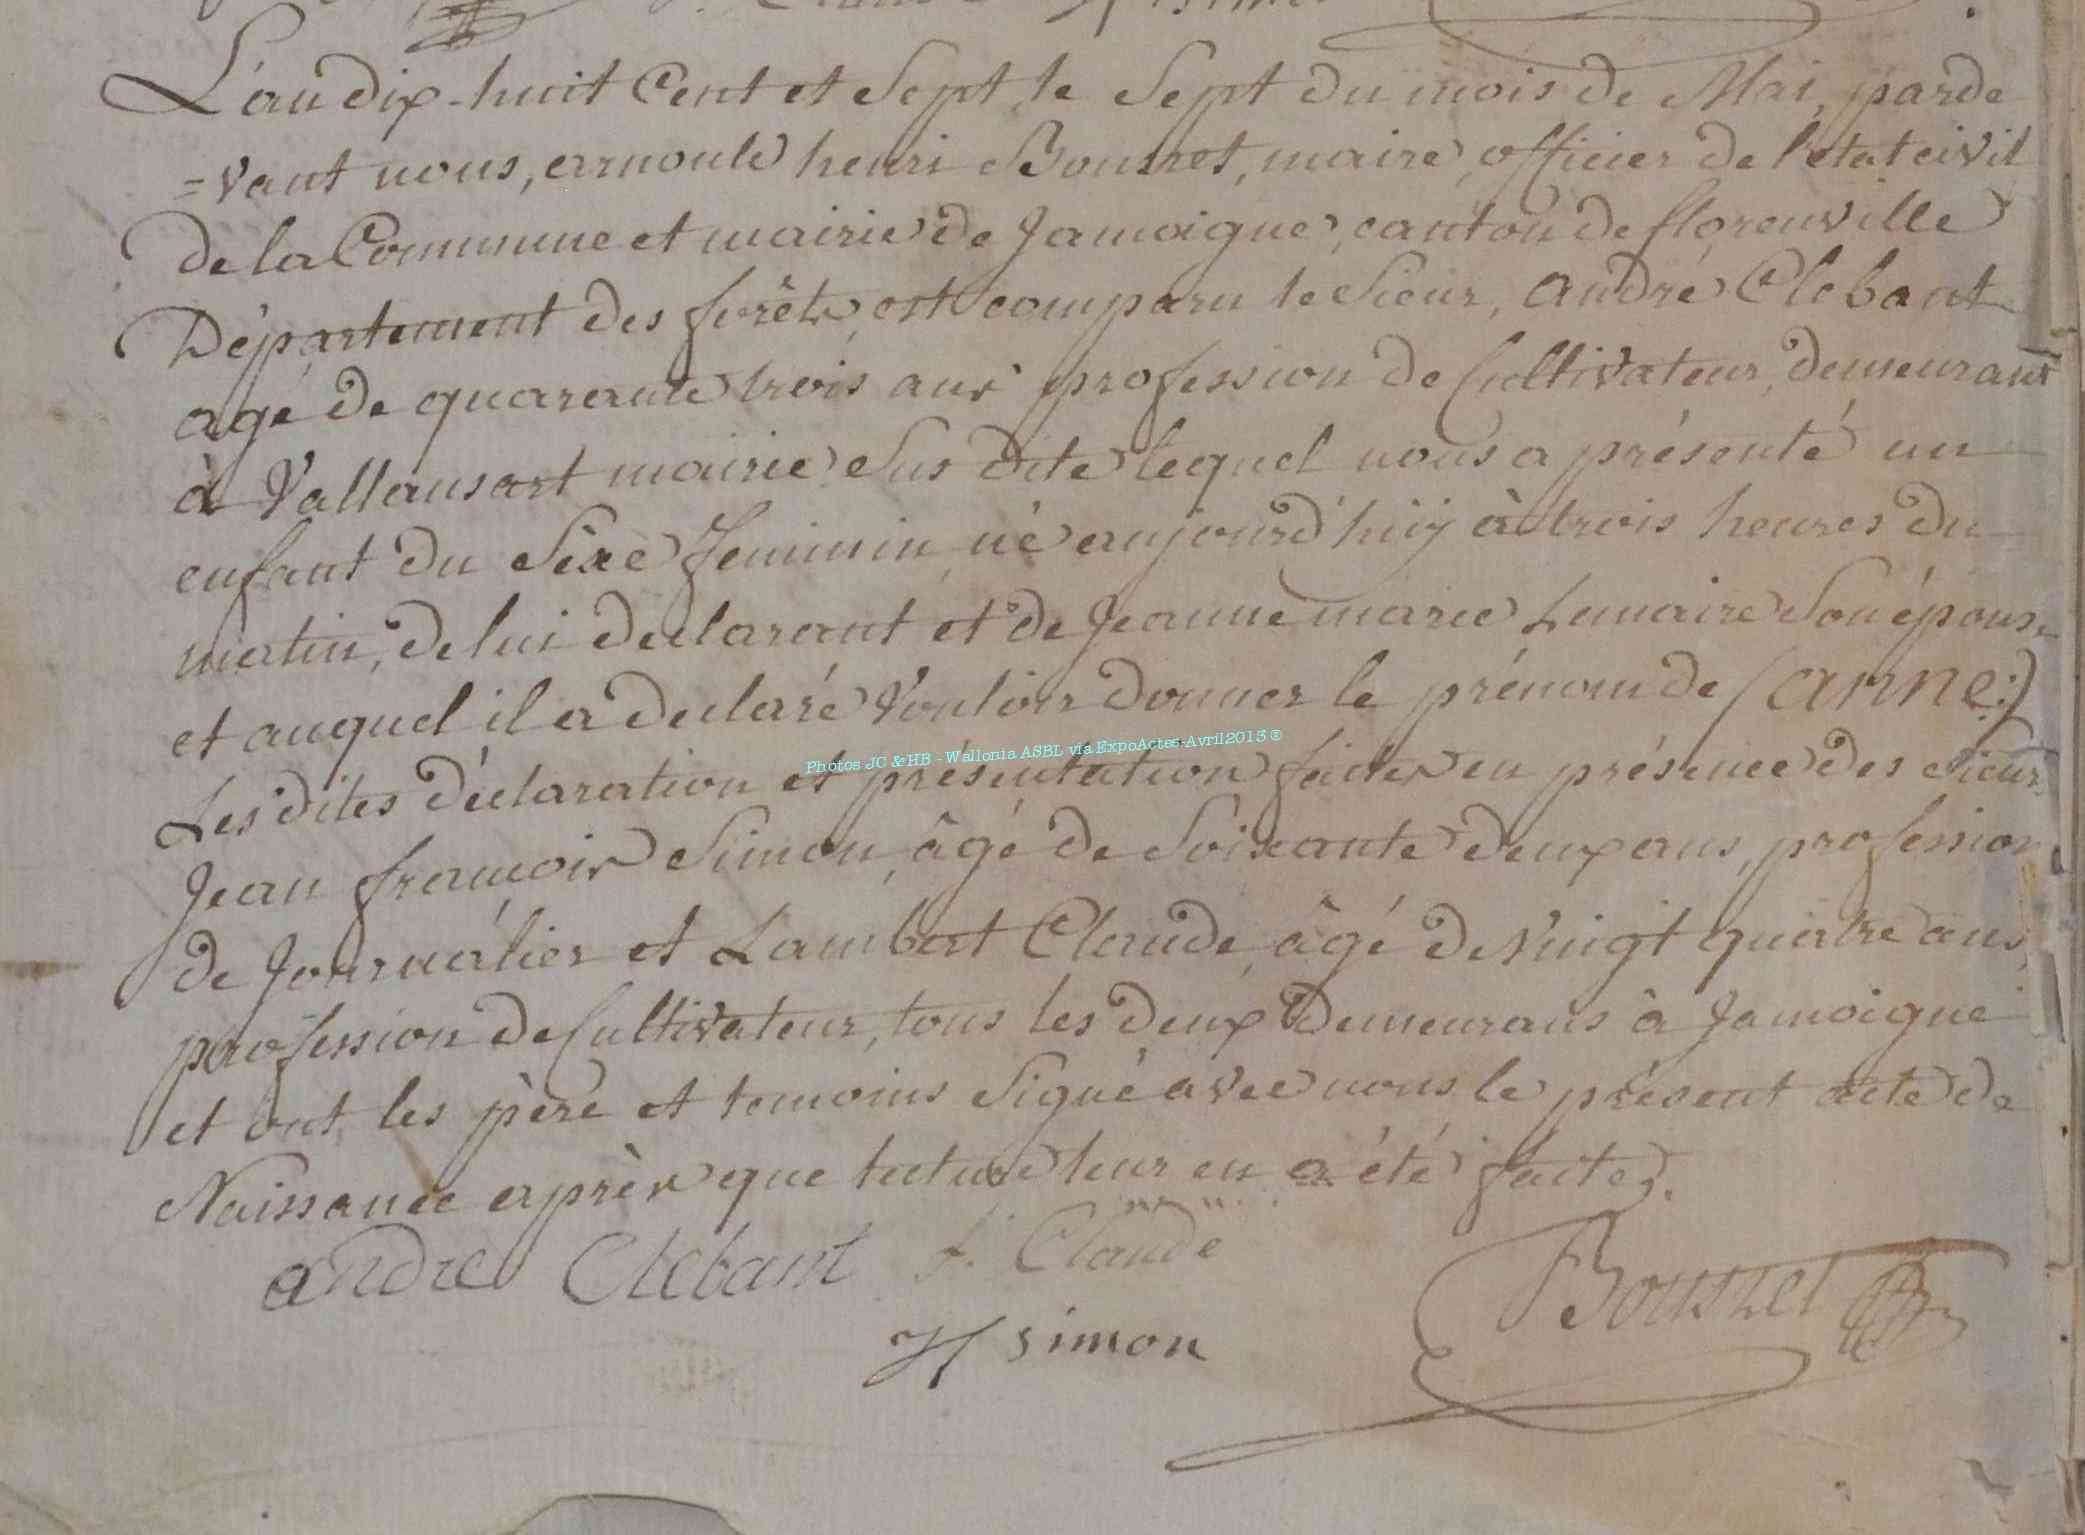 L'an dix-huit Cent et Sept, le Sept du mois de Mai, parde
=vant nous, arnould henri Bousret, maire, officier de l'etat civil
de la Commune et mairie de Jamoigne, canton de florenville
Département des forêts, est comparu le Sieur, André Clebant
agé de quarante trois ans profession de Cultivateur, demeurant
à Vallansart mairie Sus dite lequel nous a présenté un
enfant du Sèxe feminin, né aujourd'hüÿ à trois heures du
matin, de lui declarant et de Jeanne marie Lemaire Son épouse
et auquel il a declaré Vouloir donner le prénom de (anne:)
Les dites déclaration et présentation faites en présence des Sieurs
Jean françois Simon, âgé de Soixante deux ans, profession
de Journalier et Lambert Claude, âgé de Vingt quatre ans,
profession de Cultivateur, tous les deux demeurans à Jamoigne
et ont les père et temoins Signé avec nous le présent acte de
Naissance après que lecture leur en a été faite.
andre Clebant Claude
simon
Bousret
Photos JC & HB - Wallonia ASBL via ExpoActes-Avril2013 ®